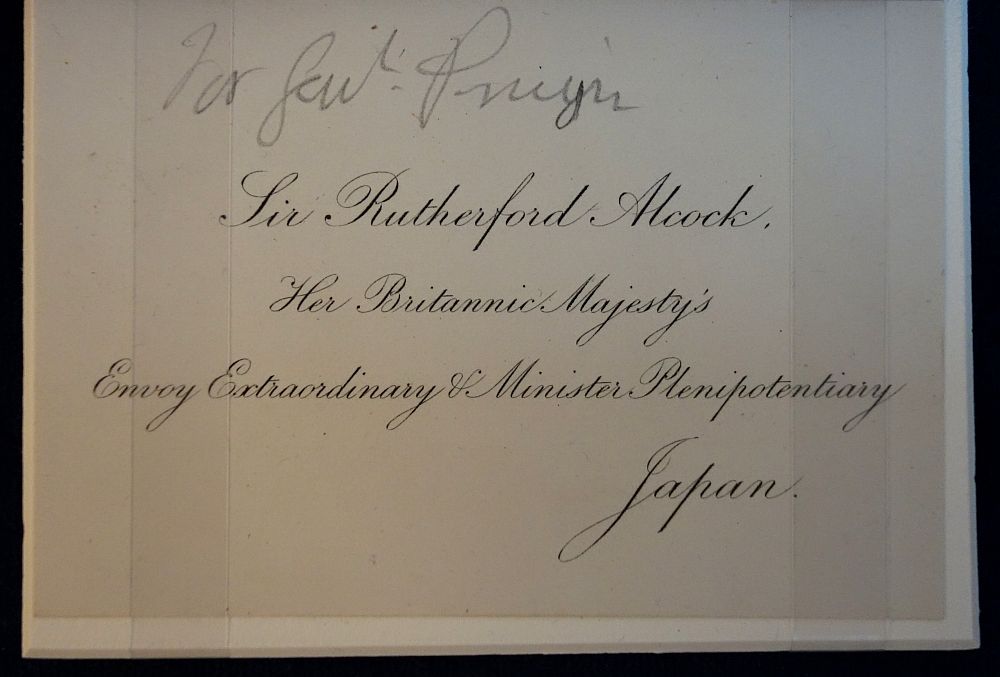 For Genl. Pruyn
Sir Rutherford Alcock.
Her Britannic Majesty's
Envoy Extraordinary & Minister Plenipotentiary
Japan.